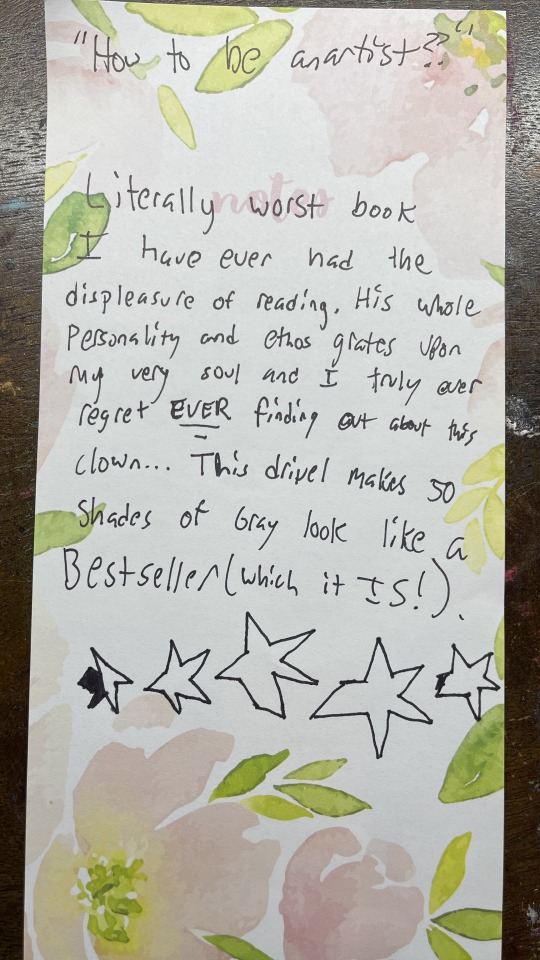 "How to be an artist??"
notes
Literally worst book
I have ever had the
displeasure of reading. His whole
Personality and ethos grates upon
My very soul and I truly over
regret EVER finding out about this
clown... This drivel makes 50
Shades of Gray look like a
Bestseller (which it IS!).